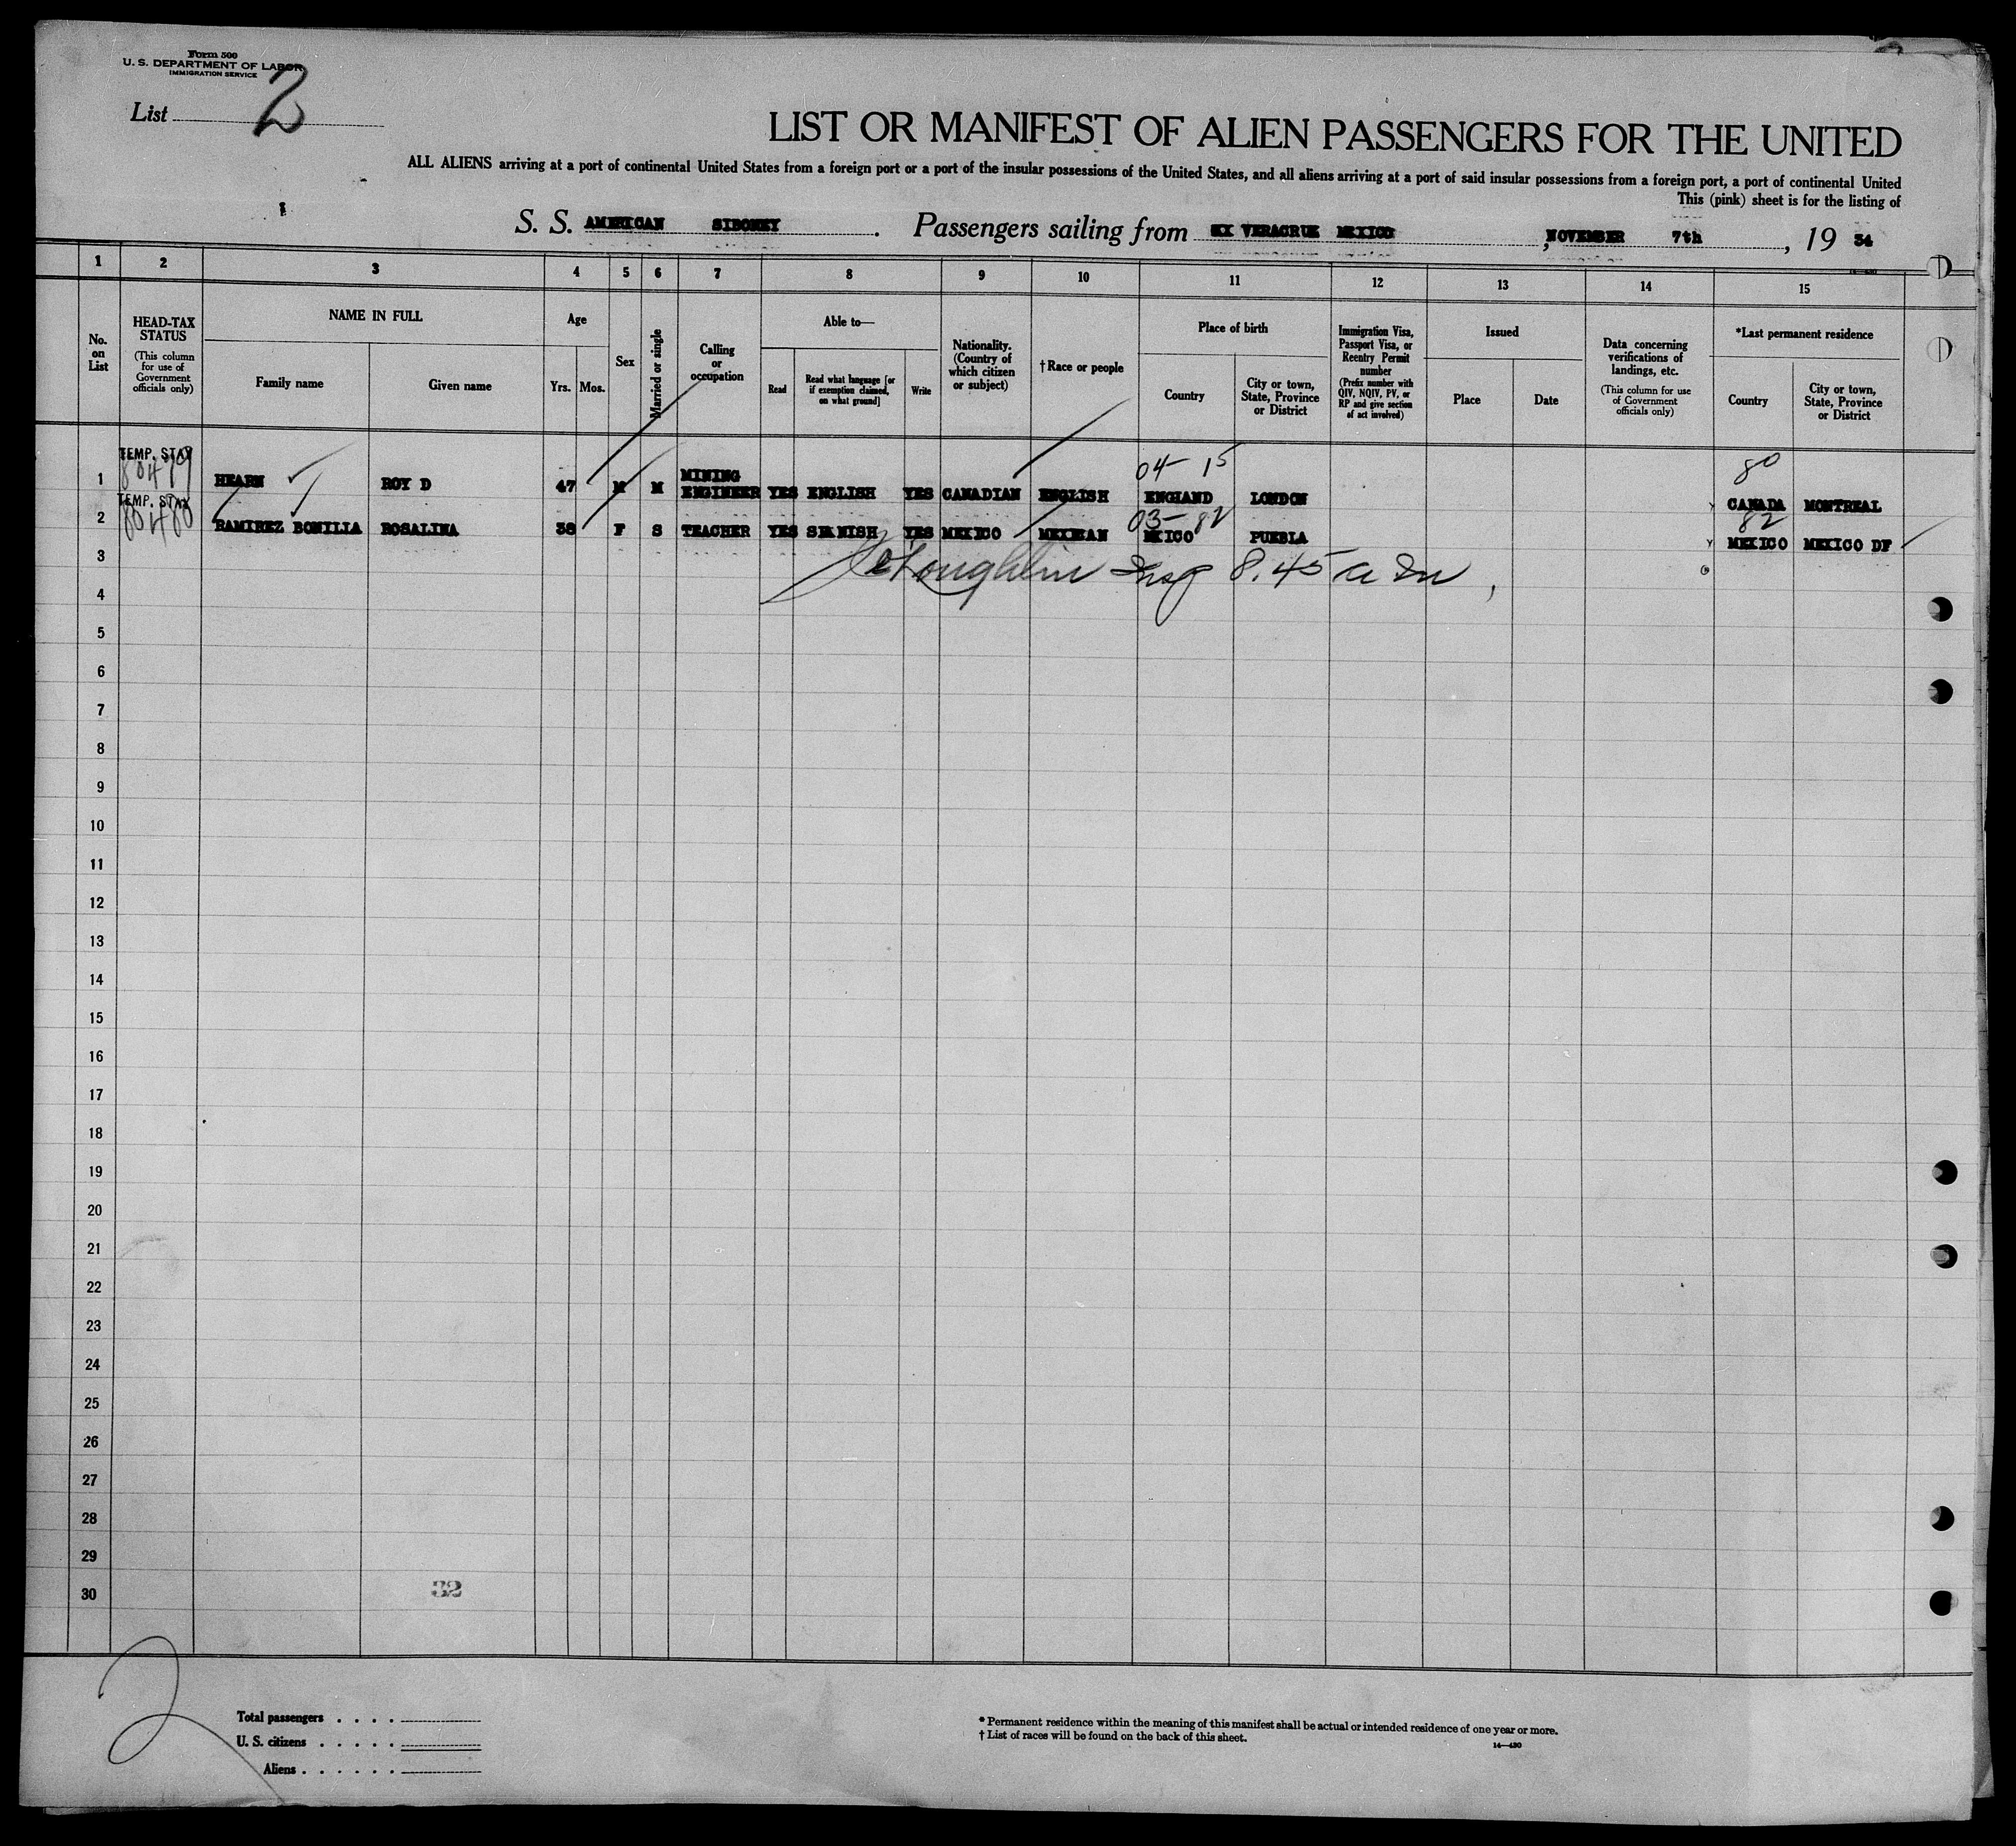 Form 500
U. S. DEPARTMENT OF LABOR
IMMIGRATION SERVICE
List 2
LIST OR MANIFEST OF ALIEN PASSENGERS FOR THE UNITED
ALL ALIENS arriving at a port of continental United States from a foreign port or a port of the insular possessions of the United States, and all aliens arriving at a port of said insular possessions from a foreign port, a port of continental United
This (pink) sheet is for the listing of
S. S. AMERICAN SIBONEY. Passengers sailing from EX VERACRUZ MEXICO, NOVEMBER 7th, 19 34
1 2 3 4 5 6 7 8 9 10 11 12 13 14 15
No. on List
HEAD-TAX STATUS
(This column for use of Government officials only)
NAME IN FULL
Family name
Given name
Age
Yrs. Mos.
Sex
Married or single
Calling or occupation
Able to—
Read
Read what language [or if exemption claimed, on what ground]
Write
Nationality. (Country of which citizen or subject)
† Race or people
Place of birth
Country
City or town, State, Province or District
Immigration Visa, Passport Visa, or Reentry Permit number
(Prefix number with QIV, NQIV, PV, or RP and give section of act involved)
Issued
Place
Date
Data concerning verifications of landings, etc.
(This column for use of Government officials only)
*Last permanent residence
Country
City or town, State, Province or District
TEMP. STAY
80479
04- 15
80
1 HEARN ROY D 47 M M MINING ENGINEER YES ENGLISH YES CANADIAN ENGLISH ENGLAND LONDON CANADA MONTREAL
TEMP. STAY
80480
03- 82
82
2 RAMIREZ BONILIA ROSALINA 38 F S TEACHER YES SPANISH YES MEXICO MEXICAN MXICO PUEBLA MEXICO MEXICO DF
3 Insp 8.45 am
4
5
6
7
8
9
10
11
12
13
14
15
16
17
18
19
20
21
22
23
24
25
26
27
28
29
30
32
2
Total passengers . . . .
U. S. citizens . . . . .
Aliens . . . . . .
* Permanent residence within the meaning of this manifest shall be actual or intended residence of one year or more.
† List of races will be found on the back of this sheet.
14—430